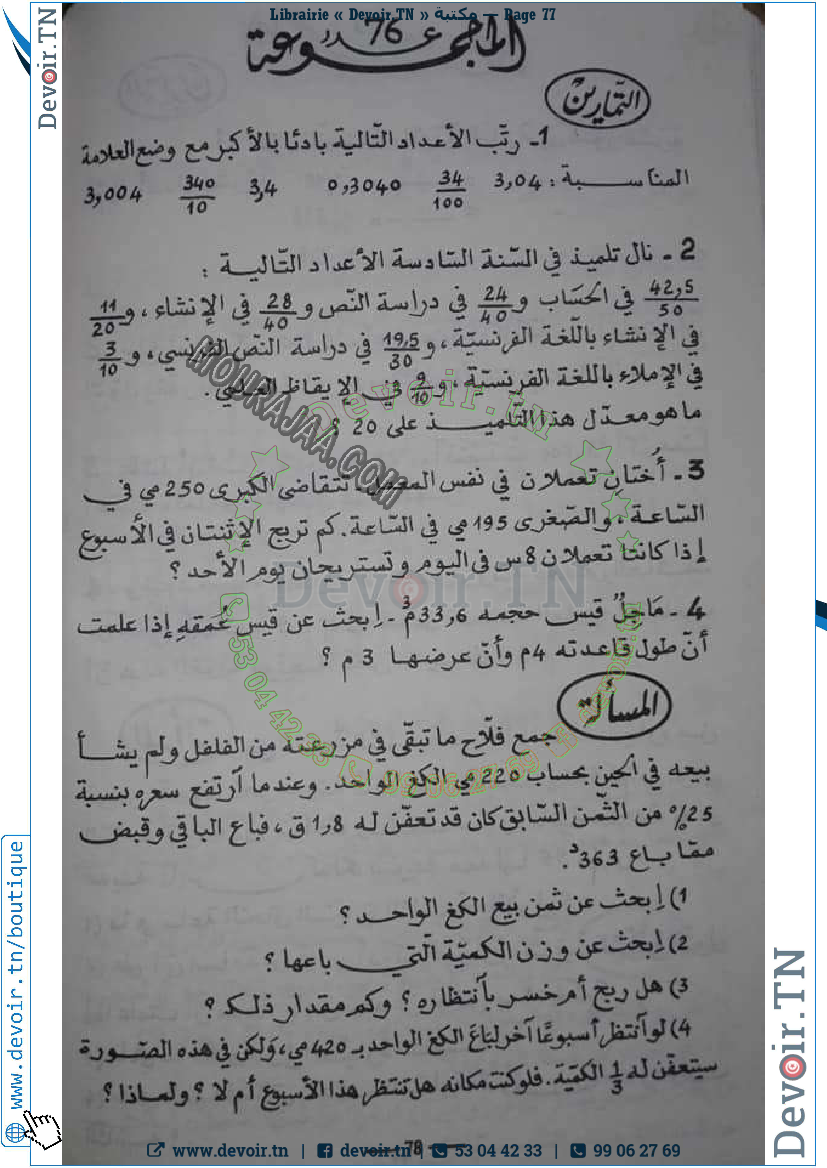 Librairie « Devoir.TN » مكتبة — Page 77
المجموعة عدد 76
التمارين
1- رتّب الأعداد التّالية بادئا بالأكبر مع وضع العلامة
المناسبة: 3,04 34/100 0,3040 3,4 340/10 3,004
2- نال تلميذ في السّنة السّادسة الأعداد التّالية :
42,5/50 في الحساب و 24/40 في دراسة النّص و 28/40 في الإنشاء، و 11/20
في الإنشاء باللّغة الفرنسيّة، و 19,5/30 في دراسة النّص الفرنسي، و 3/10
في الإملاء باللغة الفرنسيّة، و 9/10 في الإيقاظ العلمي.
ما هو معدّل هذا التّلميذ على 20 ؟
3- أُختان تعملان في نفس المعمل، تتقاضى الكبرى 250 مي في
السّاعة، والصّغرى 195 مي في السّاعة. كم تربح الإثنتان في الأسبوع
إذا كانتا تعملان 8 س في اليوم و تستريحان يوم الأحد ؟
4- مَاجِلٌ قيس حجمه 33,6 م3. اِبحث عن قيس عُمقهِ إذا علمت
أنّ طول قاعدته 4م وأنّ عرضها 3 م ؟
المسألة
جمع فلاّح ما تبقّى في مزرعته من الفلفل ولم يشأ
بيعه في الحين بحساب 220 مي الكغ الواحد. وعندما آرتفع سعره بنسبة
25% من الثّمن السّابق كان قد تعفّن له 1,8 ق، فباع الباقي وقبض
مقابل 363 د.
1) اِبحث عن ثمن بيع الكغ الواحد ؟
2) اِبحث عن وزن الكميّة الّتي باعها ؟
3) هل ربح أم خسر بآنتظاره ؟ وكم مقدار ذلك ؟
4) لو آنتظر أسبوعًا آخر لبَاعَ الكغ الواحد بـ 420 مي، ولكن في هذه الصّورة
سيتعفّن له 1/3 الكميّة. فلو كنت مكانه هل تنتظر هذا الأسبوع أم لا ؟ ولماذا ؟
78
www.devoir.tn | devoir.tn | 53 04 42 33 | 99 06 27 69
Devoir.TN
www.devoir.tn/boutique
Devoir.TN
MOURAJAA.COM
Devoir.TN
53 04 42 33